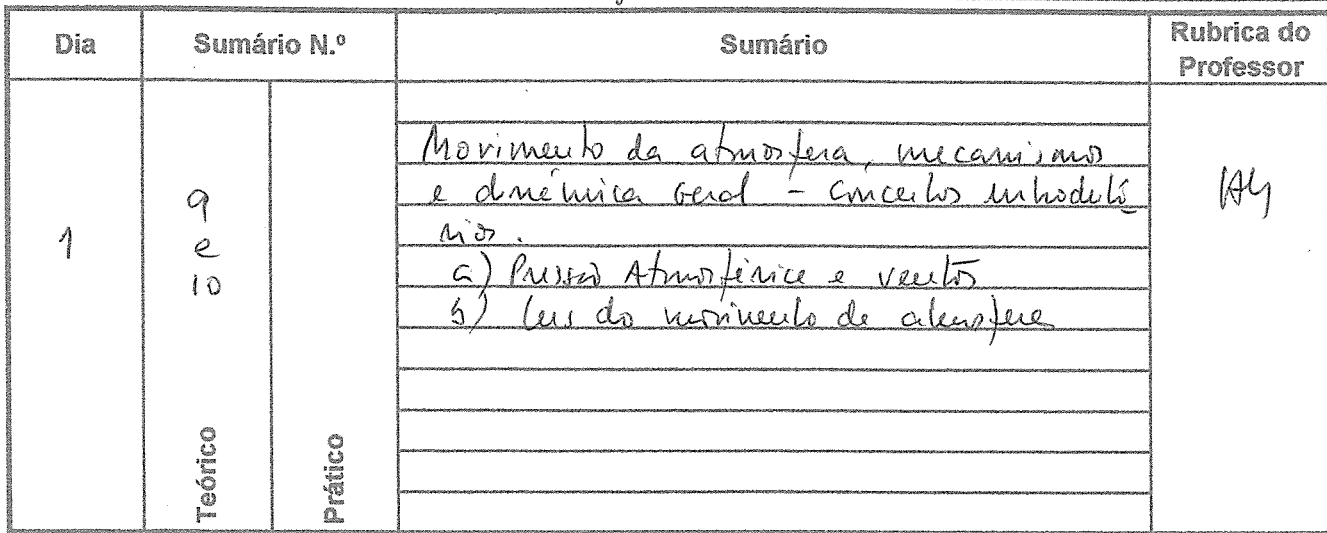 Dia Sumário N.º Sumário Rubrica do Professor
1
9
e
10
Teórico
Prático
Movimento da atmosfera, mecanismos
e dinâmica Geral - Conceitos introdutó
rios.
a) Pressão Atmosférica e ventos
b) Leis do movimento da atmosfera